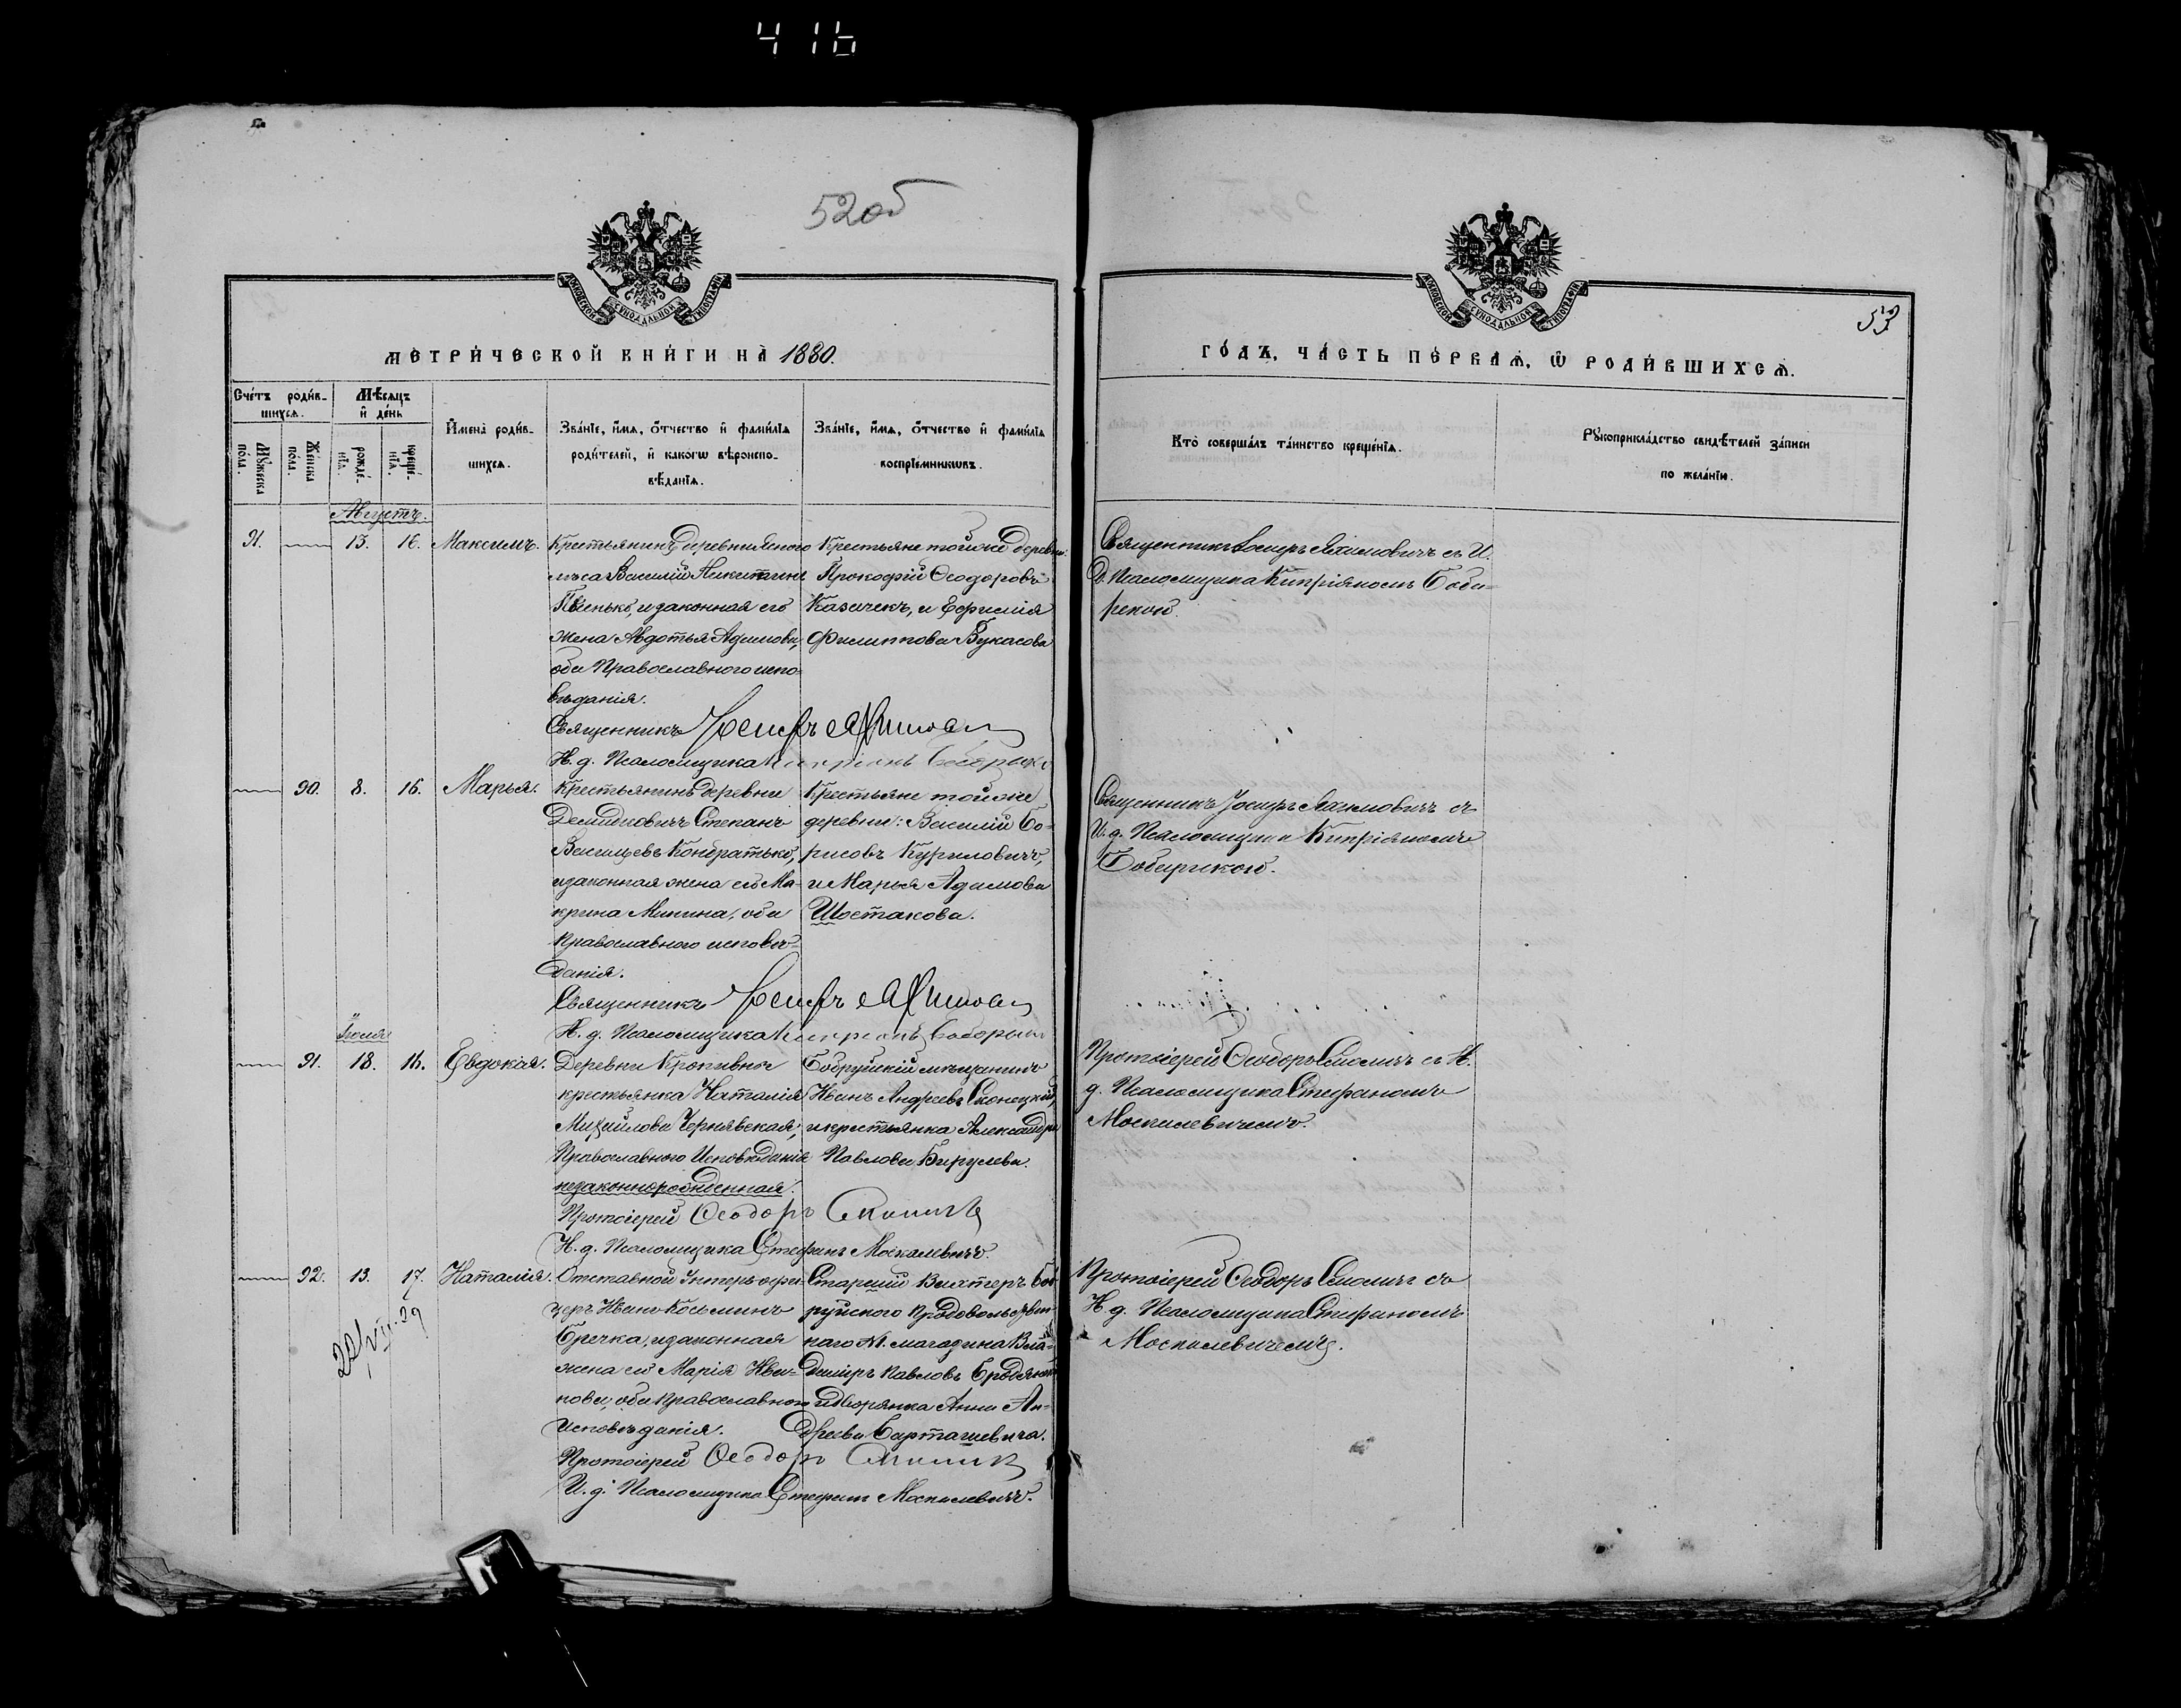 416
52об
53
МОСКОВСКОЙ СѴНОДАЛЬНОЙ ТИПОГРАФІИ
МОСКОВСКОЙ СѴНОДАЛЬНОЙ ТИПОГРАФІИ
МЕТРИ́ЧЕСКОЙ КНИ́ГИ НА̀ 1880.
ГО́ДЪ, ЧА́СТЬ ПЕ́РВАѦ, Ѡ҆ РОДИ́ВШИХСѦ.
Сче́тъ роди́в-
шихсѧ.
Мѣ́сѧцъ
и҆ де́нь
Мꙋ́жеска
по́ла.
Же́нска
по́ла.
рожде́-
нїѧ.
креще́-
нїѧ.
И҆мена̀ роди́в-
шихсѧ.
Зва́нїе, и҆́мѧ, ѻ҆́тчество и҆ фами́лїѧ
роди́телей, и҆ како́гѡ вѣроиспо-
вѣ́данїѧ.
Зва́нїе, и҆́мѧ, ѻ҆́тчество и҆ фами́лїѧ
воспрїе́мникѡвъ.
Кто̀ соверша́лъ та́инство креще́нїѧ.
Рꙋкоприкла́дство свидѣ́телей за́писи
по жела́нїю.
Августъ.
91. 13. 16. Максимъ.
Крестьянинъ деревни Ясного
лѣса Василій Никитинъ
Пѣнько, и законная его
жена Авдотья Адамова,
оба Православного испо-
вѣданія.
Священникъ Іосифъ Яхимович
И. д. Псаломщика Кипріанъ
Крестьяне тойже деревни:
Прокофій Ѳеодоровъ
Казачекъ, и Ефимія
Филиппова Букасова
Священникъ Іосифъ Яхимовичъ съ И.
Д. Псаломщика Кипріяномъ
90. 8. 16. Марья.
Крестьянинъ деревни
Демидковичъ Степанъ
Васильевъ Кондратько,
и законная жена его Ма-
крина Минина, оба
Православного исповѣ-
данія.
Священникъ Іосифъ Яхимович
И. д. Псаломщика Кипріанъ
Крестьяне тойже
деревни: Василій Бо-
рисовъ Куриловичъ,
и Марья Адамова
Шостакова.
Священникъ Іосифъ Яхимовичъ съ
И. д. Псаломщика Кипріяномъ
Іюля
91. 18. 16. Евдокія.
Деревни Крапивно
крестьянка Наталія
Михайлова Чернявская,
Православного Исповѣданія
незаконнорожденная.
Протоіерей Ѳеодоръ Смоличъ
И. д. Псаломщика Стефанъ Москалевичъ.
Бобруйскій мѣщанинъ
Иванъ Андреевъ Слонецкій,
и крестьянка Александра
Павлова Бирулева.
Протоіерей Ѳеодоръ Смоличъ съ И.
д. Псаломщика Стефаномъ
Москалевичемъ.
92. 13. 17. Наталія.
Отставной Унтеръ офи-
церъ Иванъ Косьминъ
Гречка, и законная
жена его Марія Ива-
нова, оба православного
исповѣданія.
Протоіерей Ѳеодоръ Смоличъ
И. д. Псаломщика Стефанъ Москалевичъ.
Старшій Вахтеръ Боб-
руйского Продовольствен-
наго М. магазина Вла-
димиръ Павловъ
и дворянка Анна Ан-
дреева Барташевича.
Протоіерей Ѳеодоръ Смоличъ съ
И. д. Псаломщика Стефаномъ
Москалевичемъ.